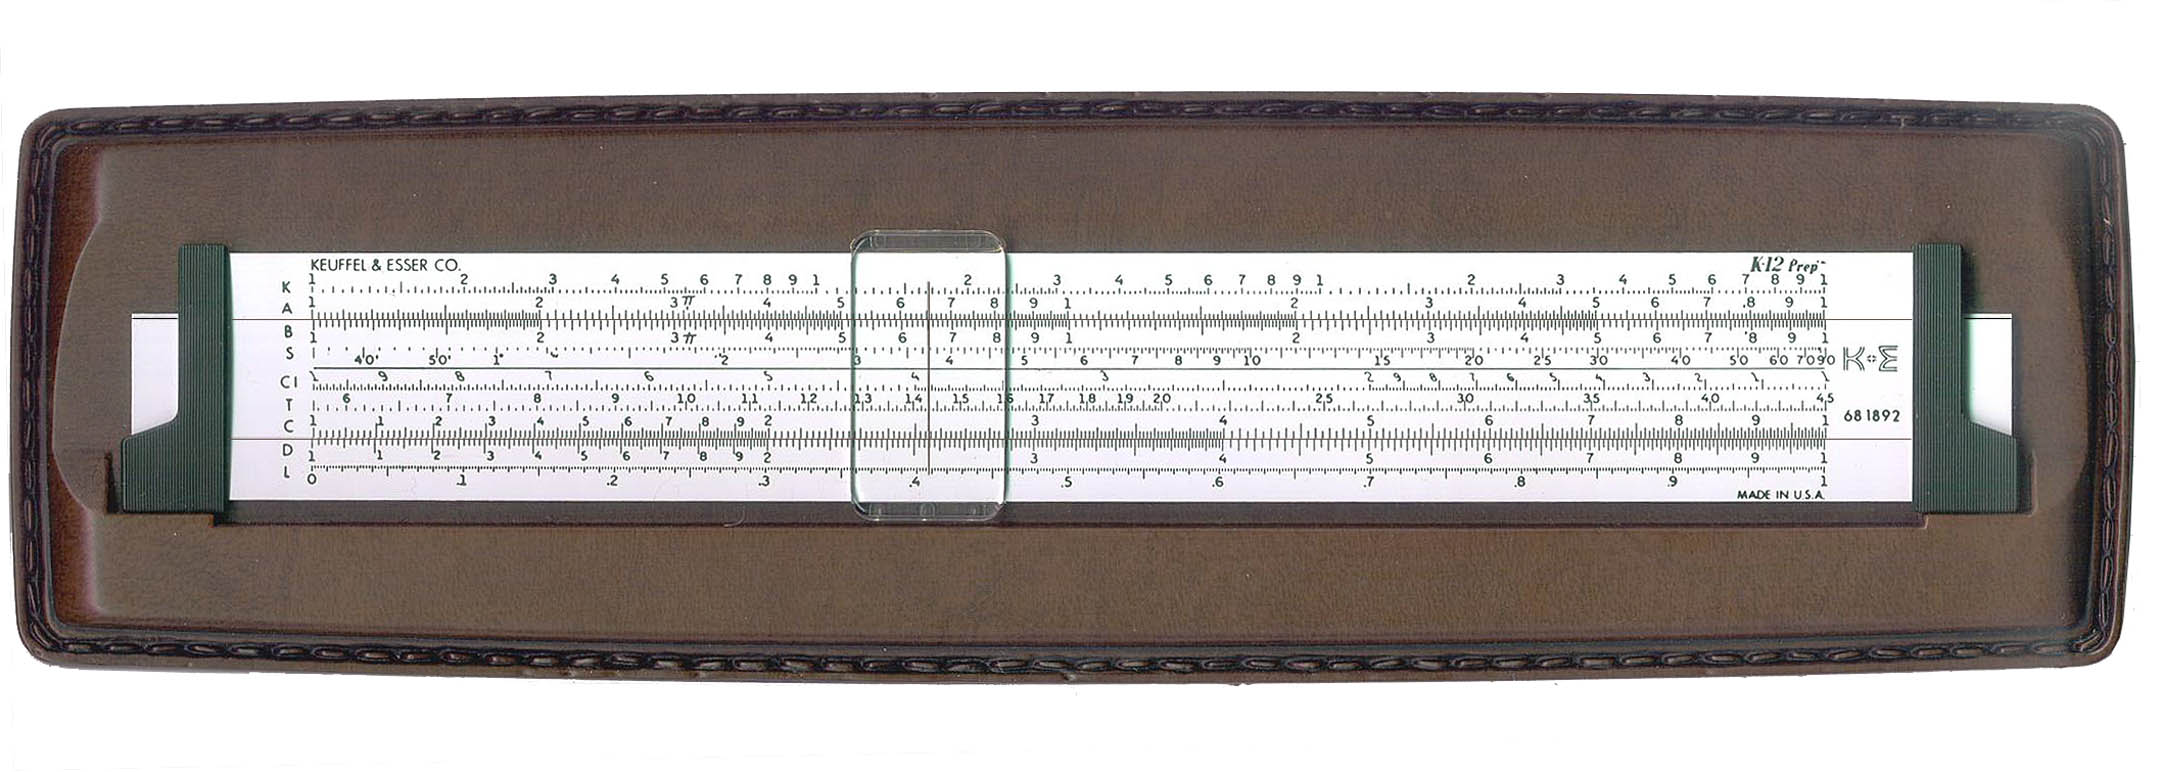 KEUFFEL & ESSER CO.
K-12 Prep™
K 1 2 3 4 5 6 7 8 9 1 2 3 4 5 6 7 8 9 1 2 3 4 5 6 7 8 9 1
A 1 2 3 π 4 5 6 7 8 9 1 2 3 4 5 6 7 8 9 1
B 1 2 3 π 4 5 6 7 8 9 1 2 3 4 5 6 7 8 9 1
S 40' 50' 1° 2 3 4 5 6 7 8 9 10 15 20 25 30 40 50 60 70 90
K+E
CI 1 9 8 7 6 5 4 3 2 9 8 7 6 5 4 3 2 1 1
T 6 7 8 9 10 11 12 13 14 15 16 17 18 19 20 25 30 35 40 45
681892
C 1 1 2 3 4 5 6 7 8 9 2 3 4 5 6 7 8 9 1
D 1 1 2 3 4 5 6 7 8 9 2 3 4 5 6 7 8 9 1
L 0 .1 .2 .3 .4 .5 .6 .7 .8 .9 1
MADE IN U.S.A.